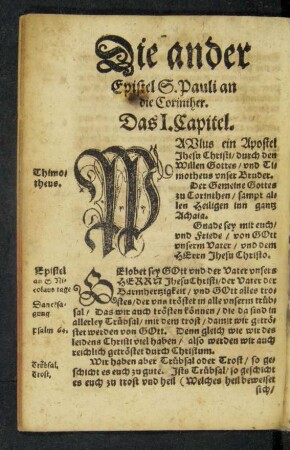 Die ander
Epistel S. Pauli an
die Corinther.
Das I. Capitel.
PAVlus ein Apostel
Jhesu Christi / durch den
Willen Gottes / vnd Ti-
motheus vnser Bruder.
Thimo-
theus.
Der Gemeine Gottes
zu Corinthen / sampt al-
len Heiligen inn gantz
Achaia.
Gnade sey mit euch /
vnd Friede / von GOtt
vnserm Vater / vnd dem
HErrn Jhesu Christo.
Epistel
an S. Ni-
colaus tage
Dancksa-
gung
Psalm
GElobet sey GOtt vnd der Vater vnsers
HERRN Jhesu Christi / der Vater der
Barmhertzigkeit / vnd GOtt alles tro-
stes / der vns tröstet in alle vnserm trüb-
sal / Das wir auch trösten können / die da sind in
allerley Trübsal / mit dem trost / damit wir getrö-
stet werden von GOtt. Denn gleich wie wir des
leidens Christi viel haben / also werden wir auch
reichlich getröstet durch Christum.
Trübsal,
Trost.
Wir haben aber Trübsal oder Trost / so ge-
schicht es euch zu gute. Ists Trübsal / so geschicht
es euch zu trost vnd heil (Welches heil beweiset
sich /